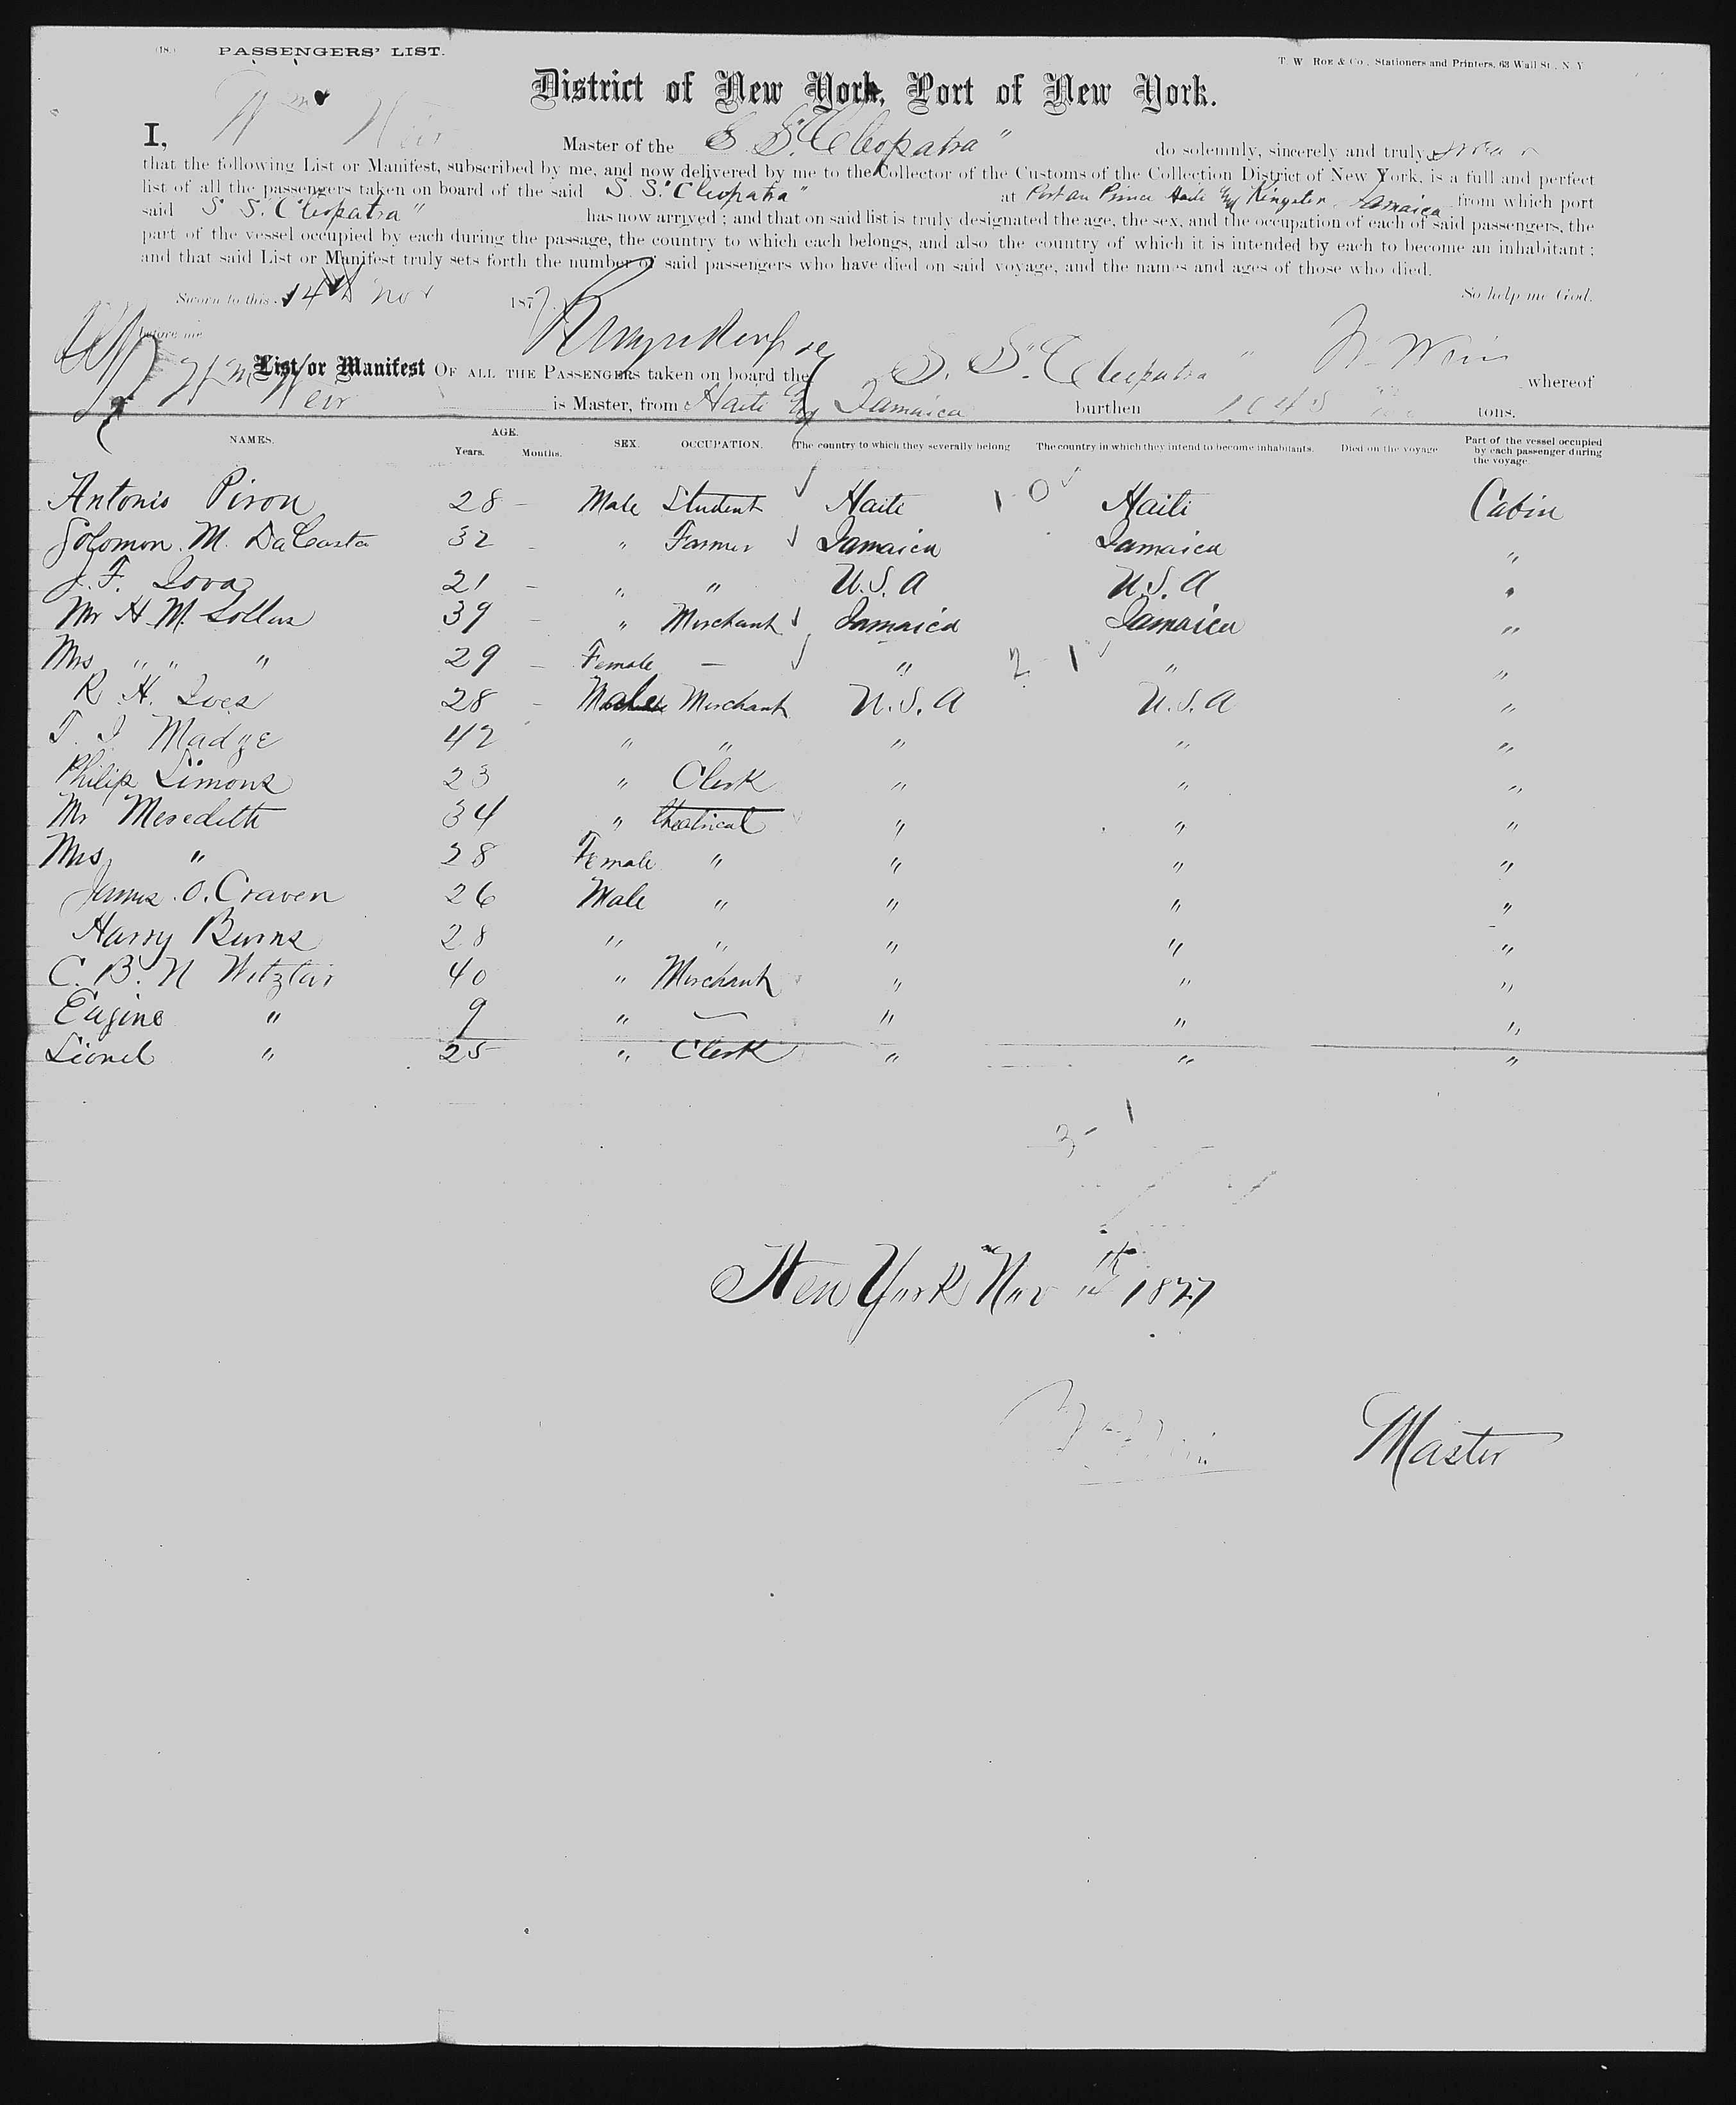 (18.) PASSENGERS' LIST.
T. W. ROE & Co., Stationers and Printers, 63 Wall St., N. Y.
District of New York, Port of New York.
I, Wm Weir Master of the S. S. "Cleopatra" do solemnly, sincerely and truly swear
that the following List or Manifest, subscribed by me, and now delivered by me to the Collector of the Customs of the Collection District of New York, is a full and perfect
list of all the passengers taken on board of the said S. S. "Cleopatra" at Port au Prince Haiti & Kingston Jamaica from which port
said S. S. "Cleopatra" has now arrived; and that on said list is truly designated the age, the sex, and the occupation of each of said passengers, the
part of the vessel occupied by each during the passage, the country to which each belongs, and also the country of which it is intended by each to become an inhabitant;
and that said List or Manifest truly sets forth the number of said passengers who have died on said voyage, and the names and ages of those who died.
Sworn to this 14th Nov 1877 So help me God.
before me W. Weir
List or Manifest OF ALL THE PASSENGERS taken on board the S. S. "Cleopatra" whereof
Wm Weir is Master, from Haiti & Jamaica burthen 1045 tons.
NAMES. AGE. Years. Months. SEX. OCCUPATION. The country to which they severally belong The country in which they intend to become inhabitants. Died on the voyage Part of the vessel occupied by each passenger during the voyage
Antonio Piron 28 - Male Student Haiti 1 - 0 Haiti Cabin
Solomon. M. DaCosta 32 - " Farmer Jamaica Jamaica "
J. F. Iova 21 - " " U.S.A U.S.A "
Mr H. M. Sollas 39 - " Merchant Jamaica Jamaica "
Mrs " " " 29 - Female - " 2 - 1 " "
R. H. Ives 28 - Male Merchant U.S.A U.S.A "
T. I. Madge 42 " " " " "
Philip Simons 23 " Clerk " " "
Mr Meredith 34 " theatrical " " "
Mrs " 28 Female " " " "
James. O. Craven 26 Male " " " "
Harry Burns 28 " " " " "
C. B. N Witzlar 40 " Merchant " " "
Eugine " 9 " - " " "
Lionel " 25 " Clerk " " "
3 - 1
New York Nov 14th 1877
Master